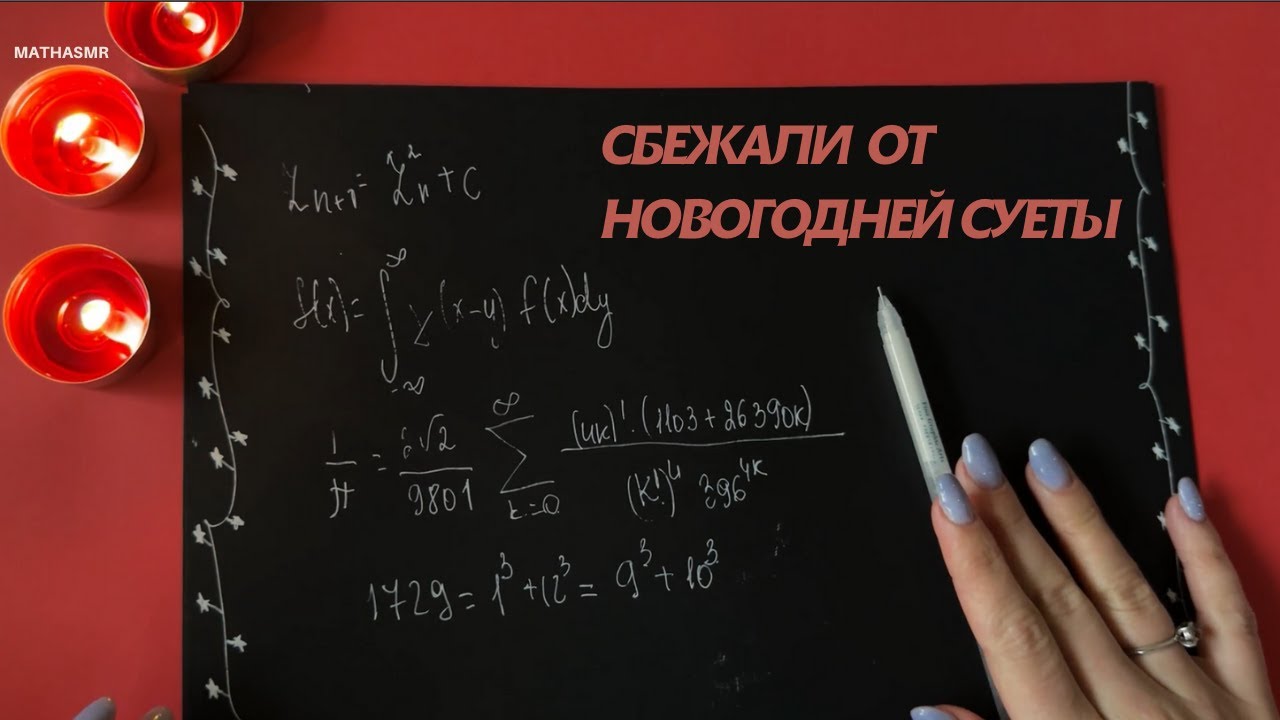 MATHASMR
СБЕЖАЛИ ОТ
НОВОГОДНЕЙ СУЕТЫ
Z_{n+1} = Z_n^2 + C
f(x) = ∫_{-∞}^{∞} (x-y) f(x)dy
1/π = 2√2/9801 ∑_{k=0}^{∞} (4k)!·(1103+26390k)/((k!)^4 396^{4k})
1729 = 1^3 + 12^3 = 9^3 + 10^3